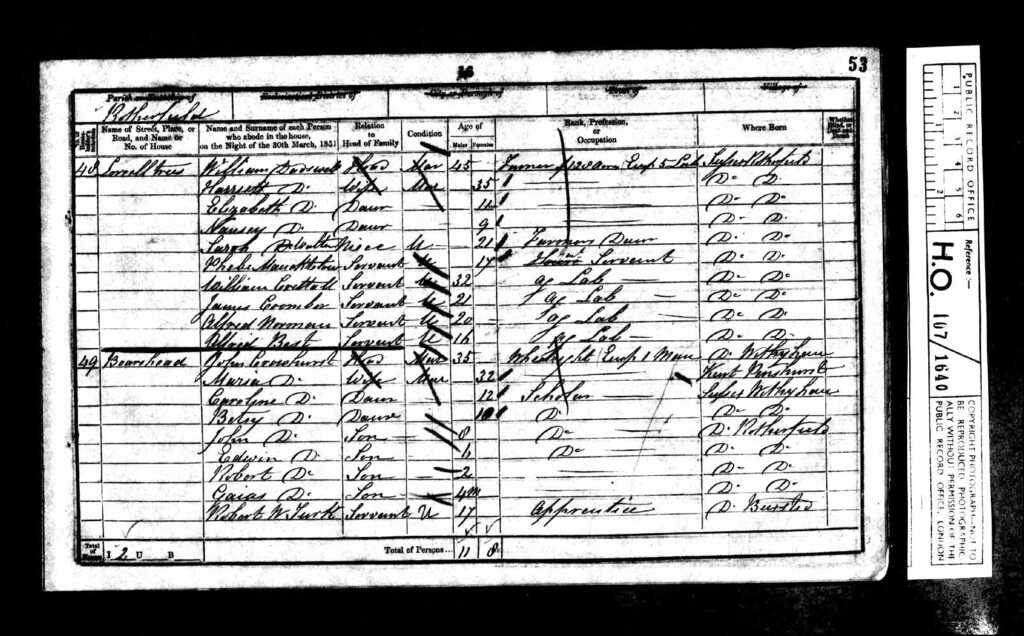 16
53
Parish or Township of
Ecclesiastical District of
City or Borough of
Town of
Village of
Rotherfield
Name of Street, Place, or Road, and Name or No. of House
Name and Surname of each Person who abode in the house, on the Night of the 30th March, 1851
Relation to Head of Family
Condition
Age of
Males Females
Rank, Profession, or Occupation
Where Born
Whether Blind, or Deaf-and-Dumb
48 William Head Mar 45 Farmer of 128 Acres Emp 5 Lab Sussex Rotherfield
Harriett D° Wife Mar 35 D° D°
Elizabeth D° Daur D° D°
D° Daur 9 D° D°
Sarah Niece U 21 Farmers Daur D° D°
Phebe Servant U 17 House Servant D° D°
William Servant U 32 Ag Lab D° D°
James Coomber Servant U 21 Ag Lab D° D°
Alfred Norman Servant U 20 Ag Lab D° D°
Best Servant U 16 Ag Lab D° D°
49 Boarshead John Crowhurst Head Mar 35 Emp 1 Man D° Withyham
Maria D° Wife Mar 32 Kent Penshurst
Caroline D° Daur 12 Scholar Sussex Withyham
Betsy D° Daur 10 D° D° D°
John D° Son 8 D° D° Rotherfield
Edwin D° Son D° D° D°
Robert D° Son 2 D° D°
Gaias D° Son 4m D° D°
Robert W. Turk Servant U 17 Apprentice D°
Total of Houses I 2 U B Total of Persons... 11 8
PUBLIC RECORD OFFICE
1 2 3 4 5 6
Reference:-
H.O. 107/1640
COPYRIGHT PHOTOGRAPH—NOT TO
BE REPRODUCED PHOTOGRAPHIC-
ALLY WITHOUT PERMISSION OF THE
PUBLIC RECORD OFFICE, LONDON